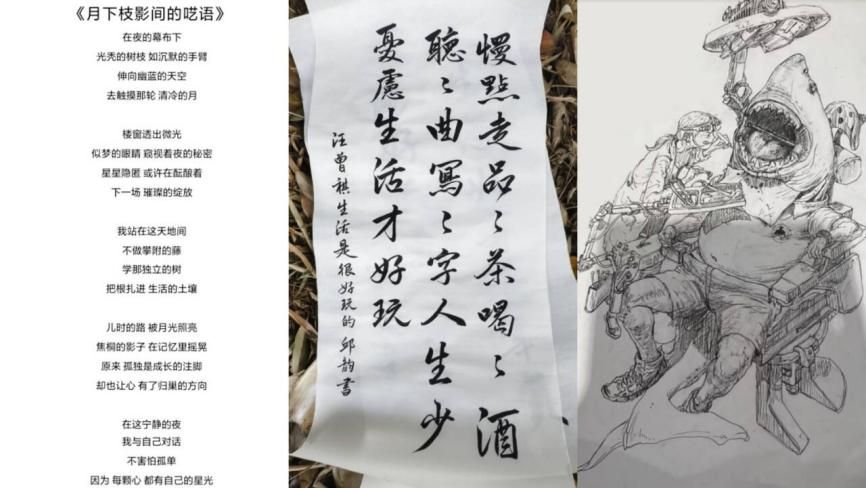 《月下枝影间的呓语》
在夜的幕布下
光秃的树枝 如沉默的手臂
伸向幽蓝的天空
去触摸那轮 清冷的月
楼窗透出微光
似梦的眼睛 窥视着夜的秘密
星星隐匿 或许在酝酿着
下一场 璀璨的绽放
我站在这天地间
不做攀附的藤
学那独立的树
把根扎进 生活的土壤
儿时的路 被月光照亮
焦桐的影子 在记忆里摇晃
原来 孤独是成长的注脚
却也让心 有了归巢的方向
在这宁静的夜
我与自己对话
不害怕孤单
因为 每颗心 都有自己的星光
慢點走品〻茶喝〻酒
聽〻曲寫〻字人生少
憂慮生活才好玩
汪曾祺生活是很好玩的 邱韵書